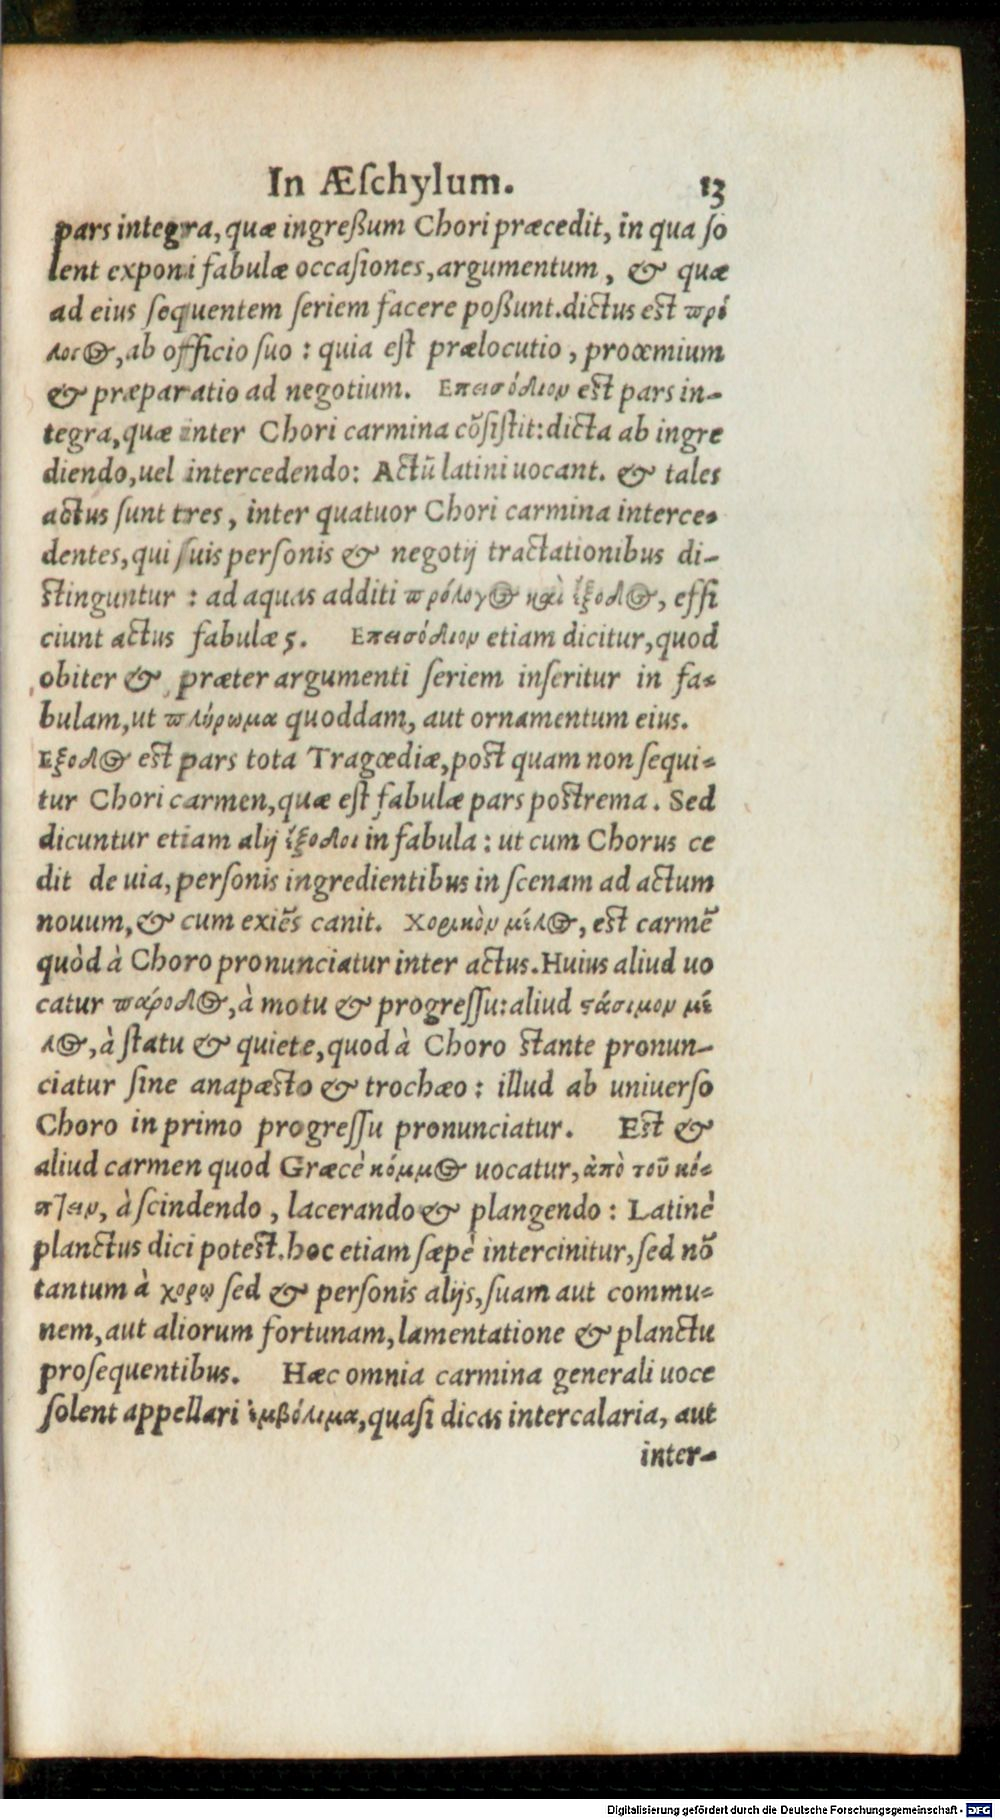 In Æſchylum. 13
pars integra, quæ ingreßum Chori præcedit, in qua ſo
lent exponi fabulæ occaſiones, argumentum, & quæ
ad eius ſequentem ſeriem facere poßunt. dictus est πρό
λογος, ab officio ſuo : quia eſt prælocutio, proœmium
& præparatio ad negotium. Επεισόδιον est pars in-
tegra, quæ inter Chori carmina cõſiſtit: dicta ab ingre
diendo, uel intercedendo: Actũ latini uocant. & tales
actus ſunt tres, inter quatuor Chori carmina interce-
dentes, qui ſuis perſonis & negotij tractationibus di-
stinguntur : ad aquas additi πρόλογος καὶ ἔξοδος, effi
ciunt actus fabulæ 5. Επεισόδιον etiam dicitur, quod
obiter & præter argumenti ſeriem inſeritur in fa-
bulam, ut πλήρωμα quoddam, aut ornamentum eius.
Εξοδος est pars tota Tragœdiæ, post quam non ſequi-
tur Chori carmen, quæ eſt fabulæ pars postrema. Sed
dicuntur etiam alij ἔξοδοι in fabula : ut cum Chorus ce
dit de uia, perſonis ingredientibus in ſcenam ad actum
nouum, & cum exiẽs canit. Χορικὸν μέλος, est carmẽ
quòd à Choro pronunciatur inter actus. Huius aliud uo
catur πάροδος, à motu & progreſſu: aliud ϛάσιμον μέ
λος, à ſtatu & quiete, quod à Choro stante pronun-
ciatur ſine anapæsto & trochæo : illud ab uniuerſo
Choro in primo progreſſu pronunciatur. Est &
aliud carmen quod Græcè κόμμος uocatur, ἀπὸ τοῦ κό-
πτειν, à ſcindendo, lacerando & plangendo : Latinè
planctus dici potest. hoc etiam ſæpè intercinitur, ſed nõ
tantum à χορῳ ſed & perſonis alijs, ſuam aut commu-
nem, aut aliorum fortunam, lamentatione & planctu
proſequentibus. Hæc omnia carmina generali uoce
ſolent appellari ἐμβόλιμα, quaſi dicas intercalaria, aut
inter-
Digitalisierung gefördert durch die Deutsche Forschungsgemeinschaft - DFG